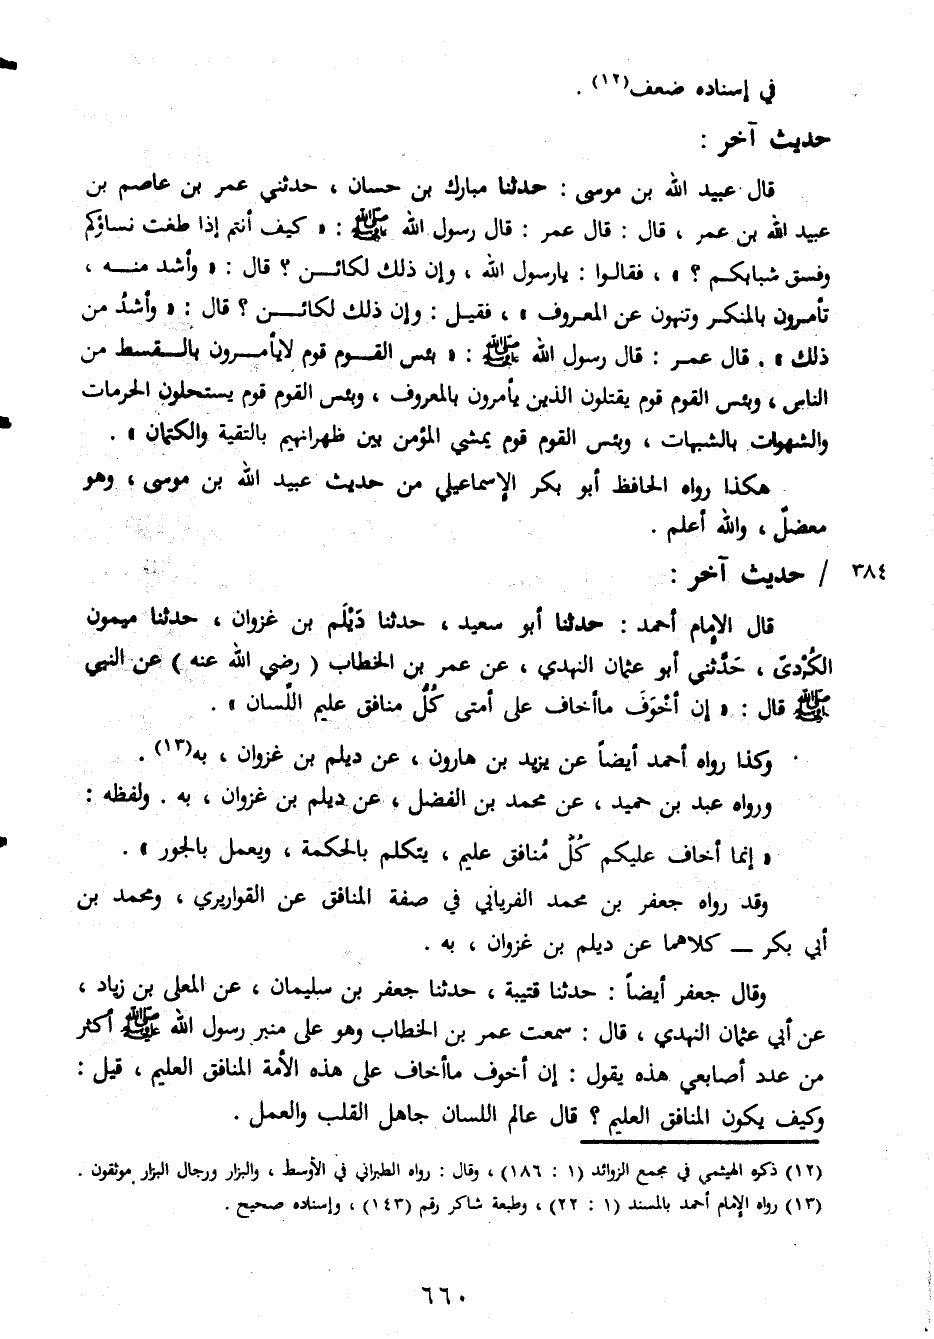 في إسناده ضعف(١٢) .
حديث آخر :
قال عبيد الله بن موسى : حدثنا مبارك بن حسان ، حدثني عمر بن عاصم بن
عبيد الله بن عمر ، قال : قال عمر : قال رسول الله ﷺ : « كيف أنتم إذا طغت نساؤكم
وفسق شبابكم ؟ » ، فقالوا : يارسول الله ، وإن ذلك لكائن ؟ قال : « وأشد منه ،
تأمرون بالمنكر وتنهون عن المعروف » ، فقيل : وإن ذلك لكائن ؟ قال : « وأشدُ من
ذلك » . قال عمر : قال رسول الله ﷺ : « بئس القوم قوم لايأمرون بالقسط من
الناس ، وبئس القوم قوم يقتلون الذين يأمرون بالمعروف ، وبئس القوم قوم يستحلون الحرمات
والشهوات بالشبهات ، وبئس القوم قوم يمشي المؤمن بين ظهرانهيم بالتقية والكتمان » .
هكذا رواه الحافظ أبو بكر الإسماعيلي من حديث عبيد الله بن موسى ، وهو
معضلٌ ، والله أعلم .
٣٨٤ / حديث آخر :
قال الإمام أحمد : حدثنا أبو سعيد ، حدثنا دَيْلَم بن غزوان ، حدثنا ميمون
الكُرْدىّ ، حَدَّثني أبو عثمان النهدي ، عن عمر بن الخطاب ( رضي الله عنه ) عن النبي
ﷺ قال : « إن أخْوَفَ ماأخاف على أمتى كُلُّ منافق عليم اللّسان » .
وكذا رواه أحمد أيضاً عن يزيد بن هارون ، عن ديلم بن غزوان ، به(١٣) .
ورواه عبد بن حميد ، عن محمد بن الفضل ، عن ديلم بن غزوان ، به . ولفظه :
« إنما أخاف عليكم كُلّ مُنافق عليم ، يتكلم بالحكمة ، ويعمل بالجور » .
وقد رواه جعفر بن محمد الفريابي في صفة المنافق عن القواريري ، ومحمد بن
أبي بكر — كلاهما عن ديلم بن غزوان ، به .
وقال جعفر أيضاً : حدثنا قتيبة ، حدثنا جعفر بن سليمان ، عن المعلى بن زياد ،
عن أبي عثمان النهدي ، قال : سمعت عمر بن الخطاب وهو على منبر رسول الله ﷺ أكثر
من عدد أصابعي هذه يقول : إن أخوف ماأخاف على هذه الأمة المنافق العليم ، قيل :
وكيف يكون المنافق العليم ؟ قال عالم اللسان جاهل القلب والعمل .
(١٢) ذكره الهيثمي في مجمع الزوائد (١ : ١٨٦) ، وقال : رواه الطبراني في الأوسط ، والبزار ورجال البزار موثقون .
(١٣) رواه الإمام أحمد بالمسند (١ : ٢٢) ، وطبعة شاكر رقم (١٤٣) ، وإسناده صحيح .
٦٦٠